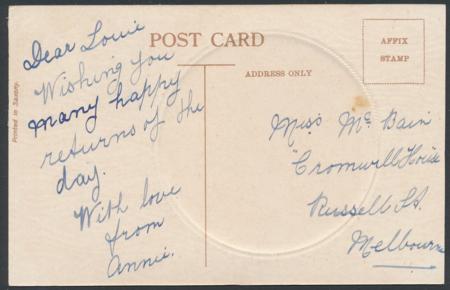 POST CARD
AFFIX
STAMP
ADDRESS ONLY
Printed in Saxony.
Dear Louie
Wishing you
many happy
returns of the
day.
With love
from
Annie.
Miss Mc Bain
"Cromwill House
Russell St.
Melbourne